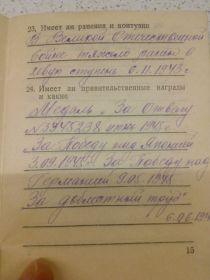 23. Имеет ли ранения и контузии
В Великой Отечественной
войне тяжело ранен в
левую ступень 6.11.1943 г.
24. Имеет ли правительственные награды
и какие
Медаль „За Отвагу
№3945238
„За Победу над Японией
3.09.1945 За Победу над
Германией 9.05.1945
За доблестный труд"
15